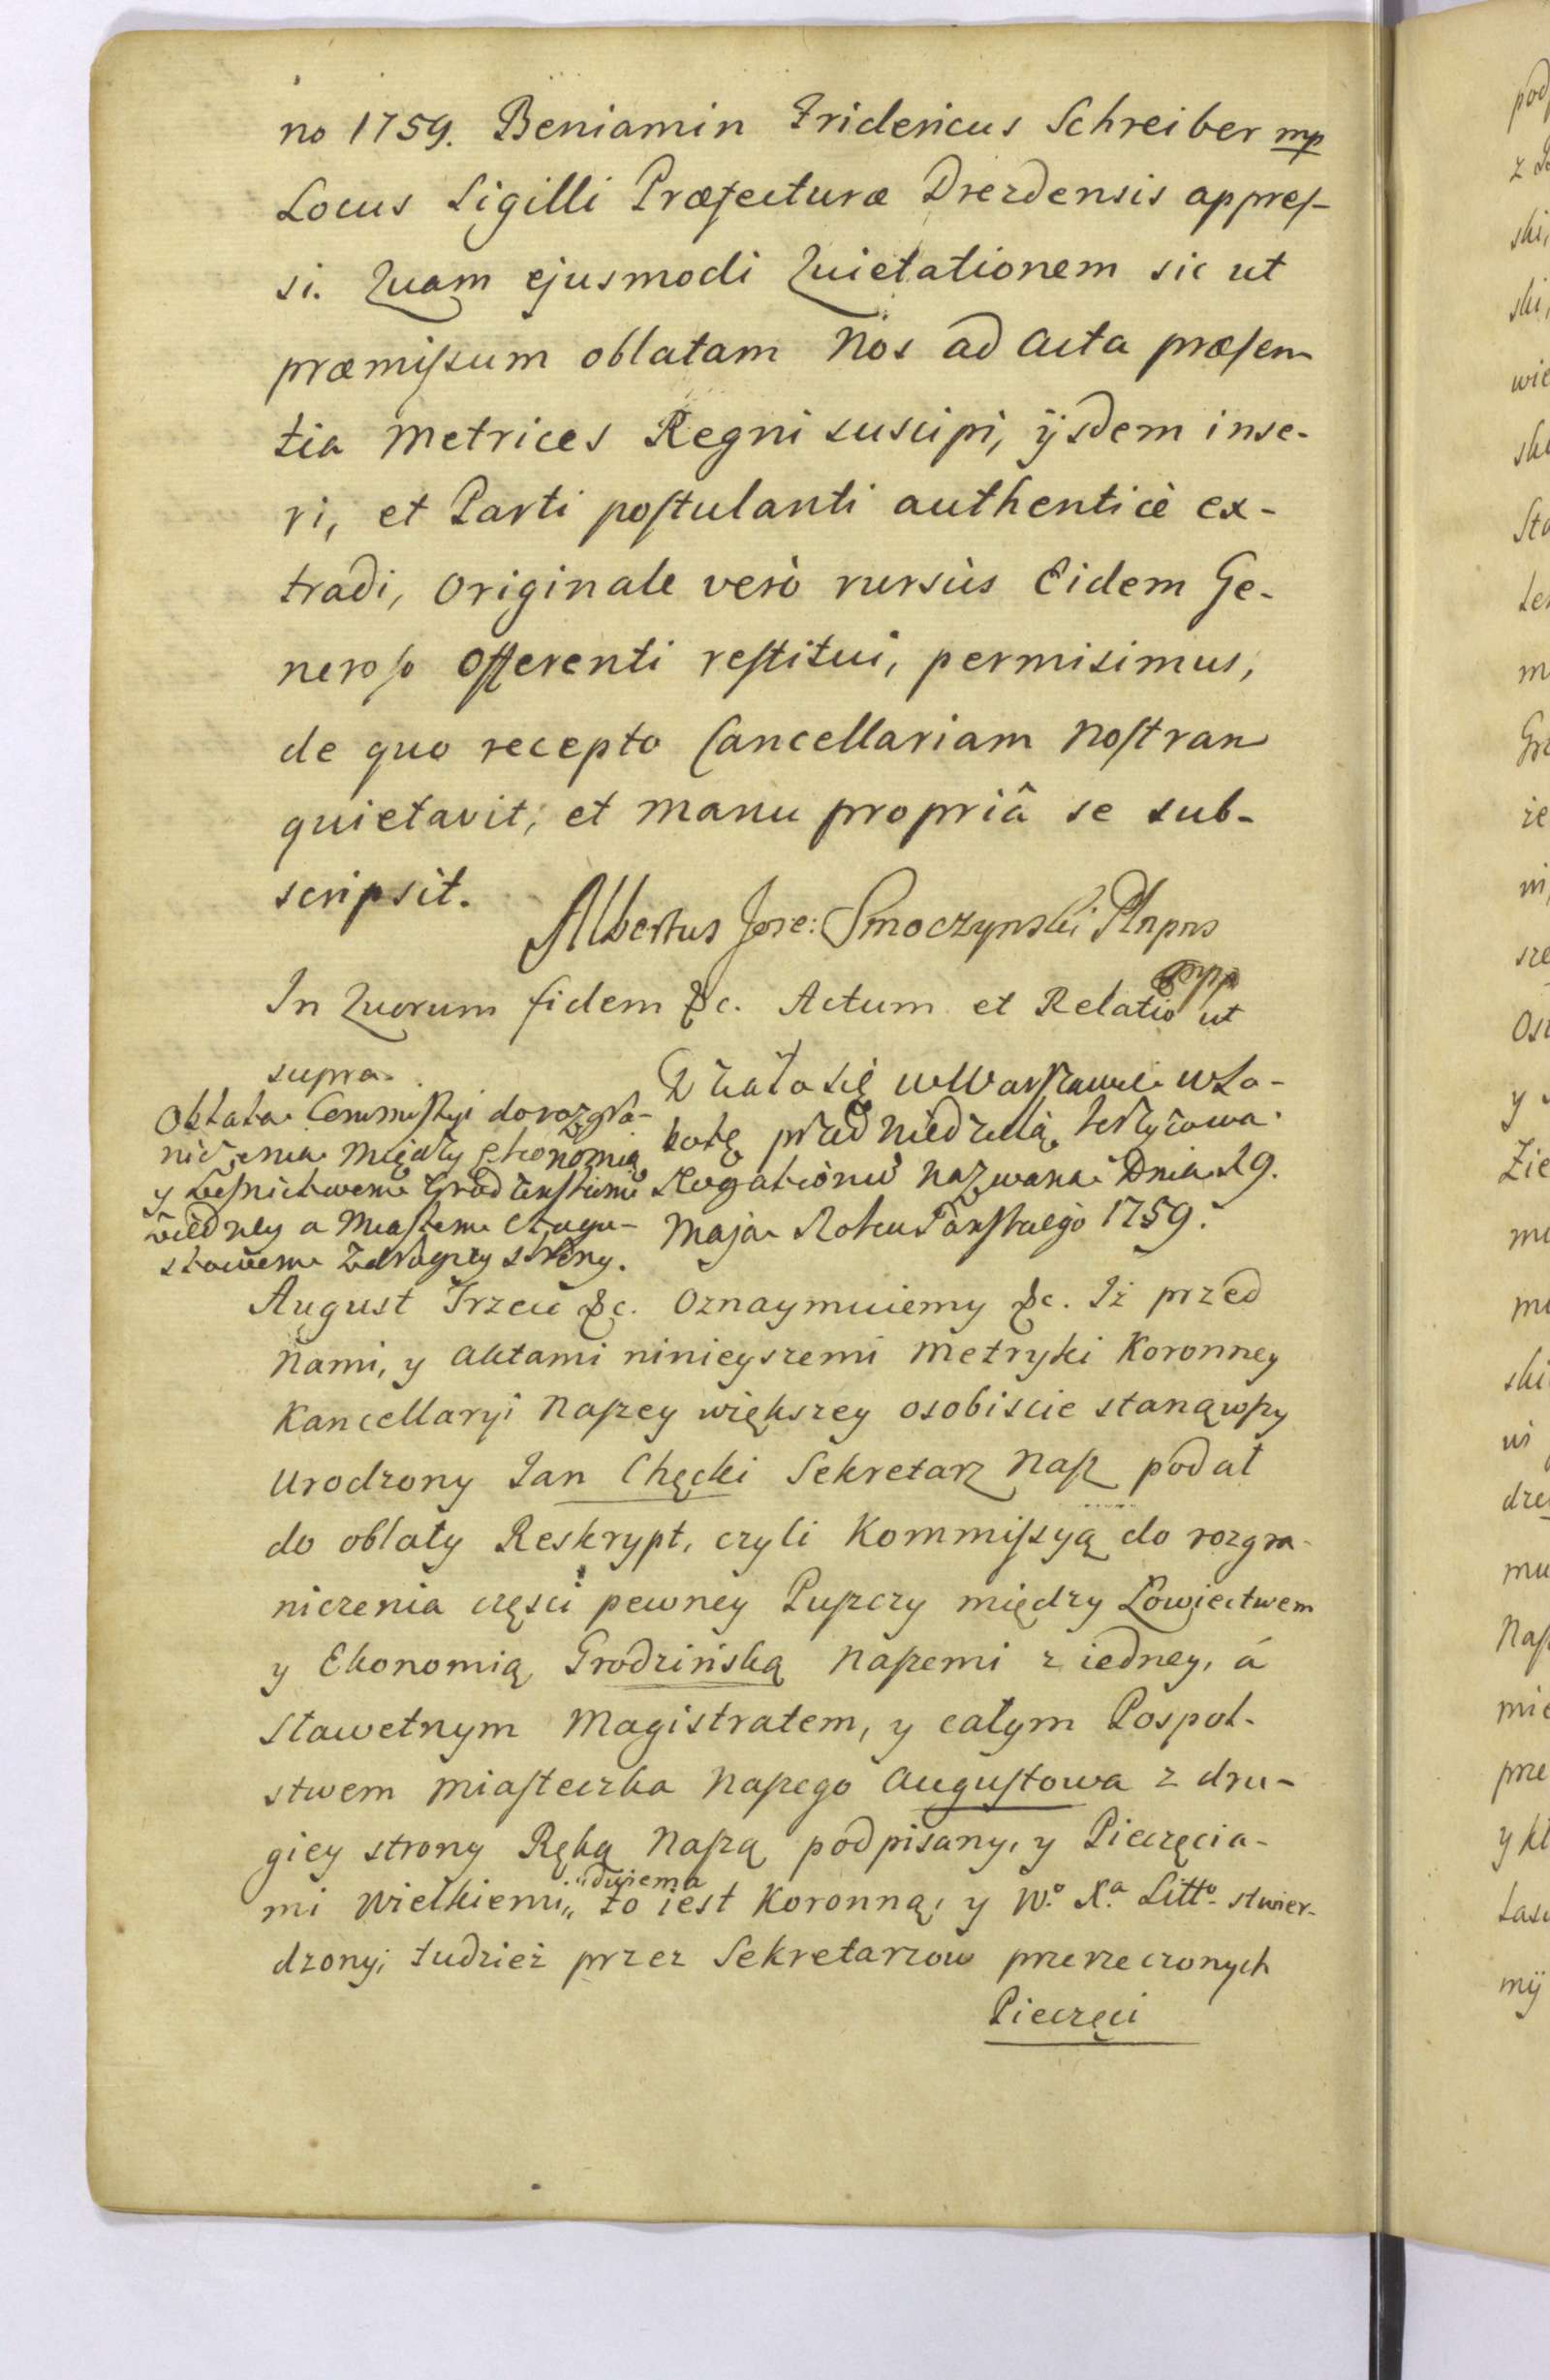 no 1759. Beniamin Fridericus Schreiber mp
Locus Sigilli Præfecturæ Drezdensis appreſ-
si. Quam ejusmodi Quietationem sic ut
præmiſsum oblatam Nos ad Acta præſen
tia Metrices Regni suscipi, ÿsdem inse-
ri, et Parti poſtulanti authenticè ex-
tradi, Originale verò rursùs Eidem Ge-
neroſo Offerenti reſtitui, permisimus,
de quo recepto Cancellariam Noſtram
quietavit, et manu propriâ se sub-
scripsit.
Albertus Jose: Smoczynski
mpp
In Quorum fidem &c. Actum et Relatio ut
supra.
Działo się w Warſzawie w So-
botę przed Niedzielą Krzyżowa
Rogationum nazwaną Dnia 29.
Maja Roku Pańſkiego 1759.
Oblata Commiſſyi do rozgra-
niczenia między Ekonomią
y Leſnictwem Grodzienſkiemi
z iedney a Miaſtem Augu-
ſtowem z drugiey strony.
August Trzeci &c. Oznaymuiemy &c. Iż przed
Nami, y Aktami ninieyszemi Metryki Koronney
Kancellaryi Naſzey większey osobiscie stanąwſzy
Urodzony Jan Chęcki Sekretarz Naſz podał
do oblaty Reskrypt, czyli Kommiſsyą do rozgra-
niczenia częsci pewney Puſzczy między Łowiectwem
y Ekonomią Grodzińską Naſzemi z iedney, á
Sławetnym Magistratem, y całym Pospol-
stwem Miaſteczka Naſzego Auguſtowa z dru-
giey strony Ręką Naſzą podpisany, y Pieczęcia-
mi Wielkiemi „dwiema to iest Koronną, y W.º X.ª Littº stwier-
dzony, tudzież przez Sekretarzow przerzeczonych
Pieczęci